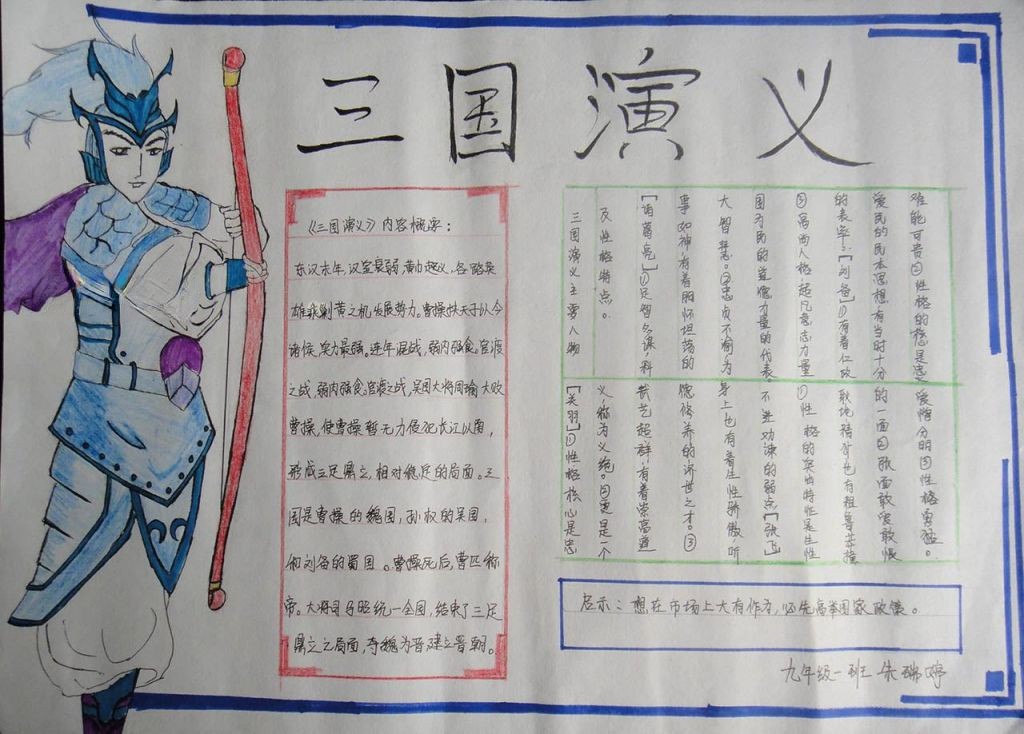 三国演义
《三国演义》内容概要：
东汉末年，汉室衰弱，黄巾起义，各路英
雄乘剿黄之机发展势力。曹操扶天子以令
诸侯，实力最强。连年混战，弱肉强食。官渡
之战，弱肉强食。官渡之战，吴国大将周瑜大败
曹操，使曹操暂无力侵犯长江以南，
形成三足鼎立，相对稳定的局面。三
国是曹操的魏国，孙权的吴国，
和刘备的蜀国。曹操死后，曹丕称
帝。大将司马昭统一全国，结束了三足
鼎立之局面，夺魏为晋建立晋朝。
三国演义主要人物
及性格特点。
[诸葛亮]①足智多谋，料
事如神有着胸怀坦荡的
大智慧。②忠贞不渝为
国为民的道德力量的代表。
③高尚人格超凡意志力量
的表率。[刘备]①有着仁政
爱民的民本思想有当时十分
难能可贵②性格的核心是忠
[关羽]①性格核心是忠
义称为义绝。②更是一个
武艺超群，有着崇高道
德修养的济世之才。③
身上也有着生性骄傲，听
不进劝谏的弱点[张飞]
①性格的突出特性是生性
也有粗鲁莽撞
的一面②张面敢爱敢恨
爱憎分明③性格勇猛。
启示：想在市场上大有作为，必先高举国家政策。
九年级一班 朱瑞婷